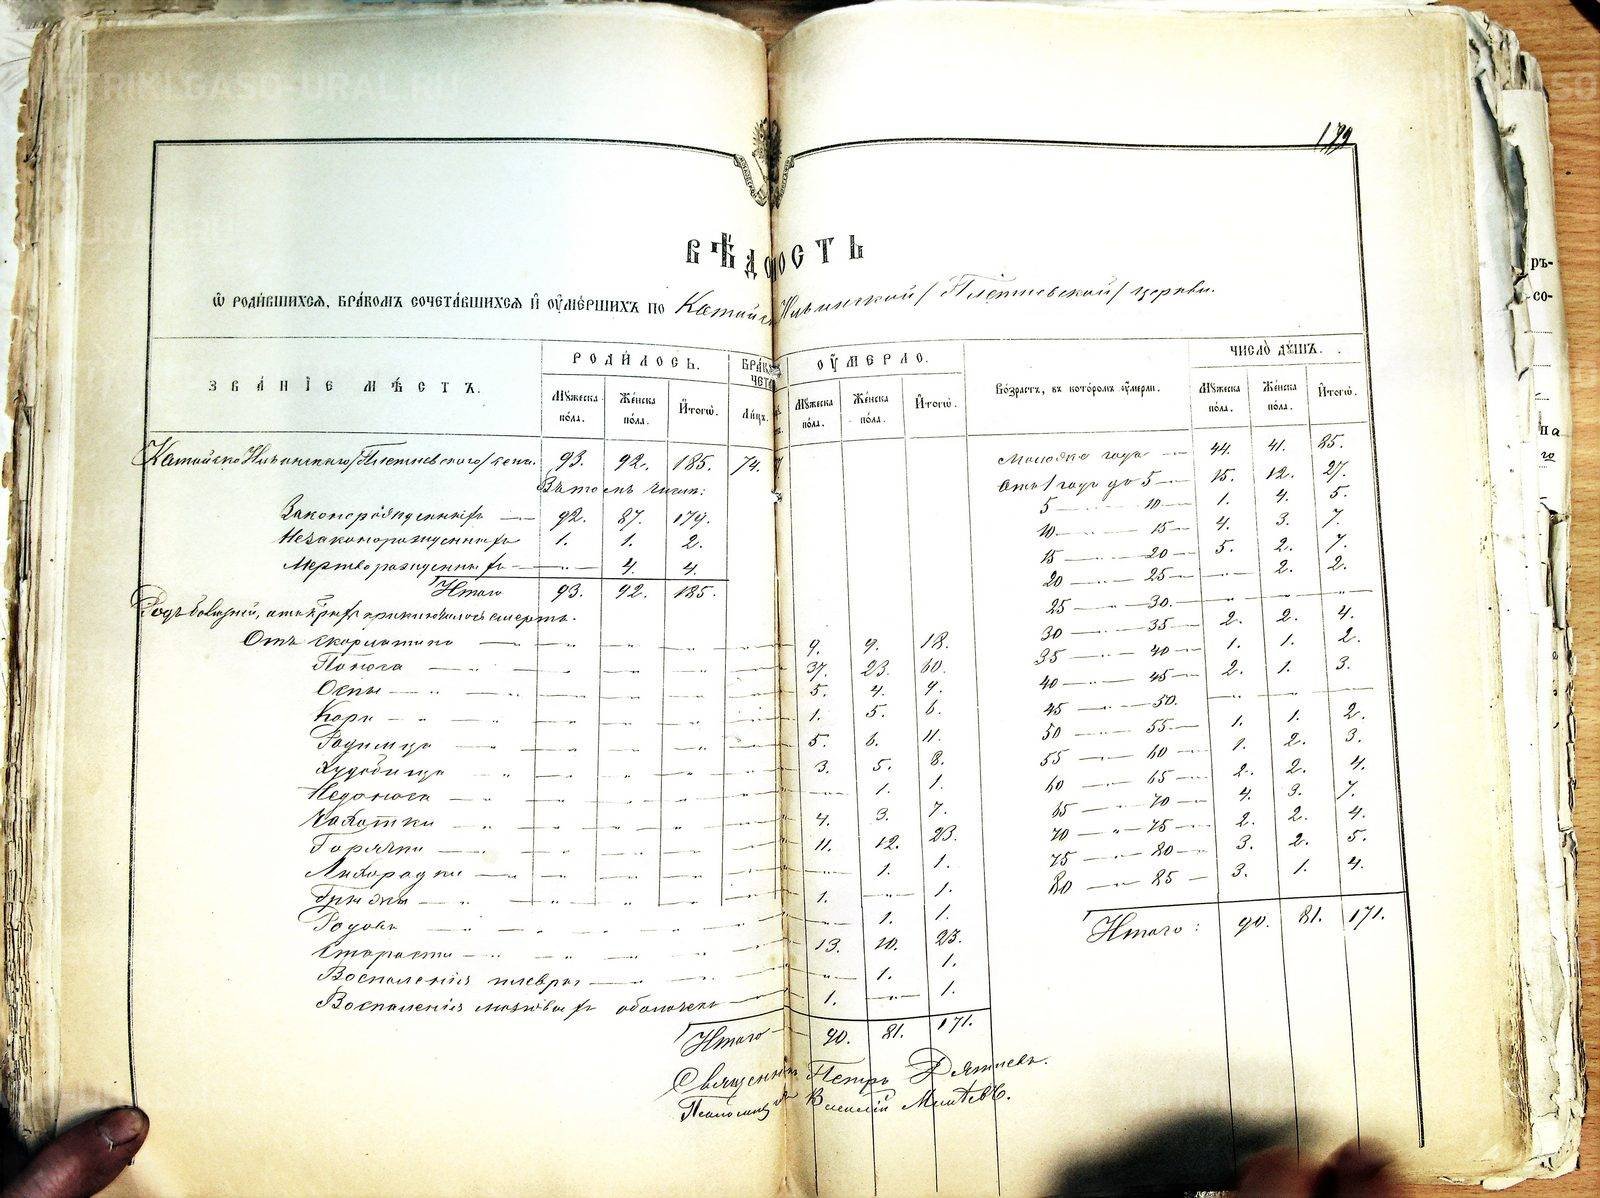 METRIKI.GASO-URAL.RU
179
ВѢДОМОСТЬ
Ѡ РОДИВШИХСЯ, БРАКОМЪ СОЧЕТАВШИХСЯ И ОУМЕРШИХЪ ПО Катайско Ильинской /Плетневской/ церкви.
ЗВАНІЕ МѢСТЪ. РОДИЛОСЬ. ОУМЕРЛО. Возрастъ, въ которомъ оумерли. ЧИСЛО ДУШЪ.
Мужеска пола. Женска пола. Итогѡ. Лицъ. Мужеска пола. Женска пола. Итогѡ. Мужеска пола. Женска пола. Итогѡ.
Катайско Ильинскаго /Плетневскаго/ 93. 92. 185. 74.
Въ томъ числѣ:
Законорожденныхъ — 92. 87. 179.
Незаконорожденныхъ 1. 1. 2.
Мертворожденныхъ — — 4. 4.
Итого 93. 92. 185.
Родъ болѣзней, отъ коихъ приключилась смерть.
Отъ скарлатины 9. 9. 18.
Поноса 37. 23. 60.
Оспы 5. 4. 9.
Кори 1. 5. 6.
Родимца 5. 6. 11.
Худобища 3. 5. 8.
Недоноса — 1. 1.
Чахотки 4. 3. 7.
Горячки 11. 12. 23.
Лихорадки — 1. 1.
Грыжи 1. — 1.
Родовъ — 1. 1.
Старости 13. 10. 23.
Воспаленія плевры — 1. 1.
Воспаленія мозговыхъ оболочекъ 1. — 1.
Итого 90. 81. 171.
Священникъ Петръ
Псаломщикъ Василій
Моложе года 44. 41. 85.
Отъ 1 года до 5 — 15. 12. 27.
5 — 10 — 1. 4. 5.
10 — 15 — 4. 3. 7.
15 — 20 — 5. 2. 7.
20 — 25 — — 2. 2.
25 — 30. — — —
30 — 35 — 2. 2. 4.
35 — 40 — 1. 1. 2.
40 — 45 — 2. 1. 3.
45 — 50. — — —
50 — 55 — 1. 1. 2.
55 — 60 — 1. 2. 3.
60 — 65 — 2. 2. 4.
65 — 70 — 4. 3. 7.
70 — 75 — 2. 2. 4.
75 — 80 — 3. 2. 5.
80 — 85 — 3. 1. 4.
Итого: 90. 81. 171.